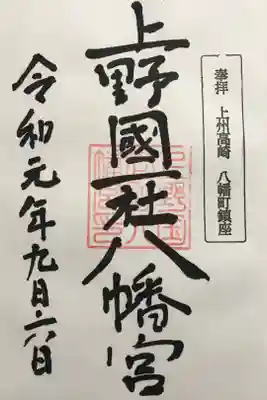 奉拝 上州高崎 八幡町鎮座
上野國一社八幡宮
令和元年九月六日